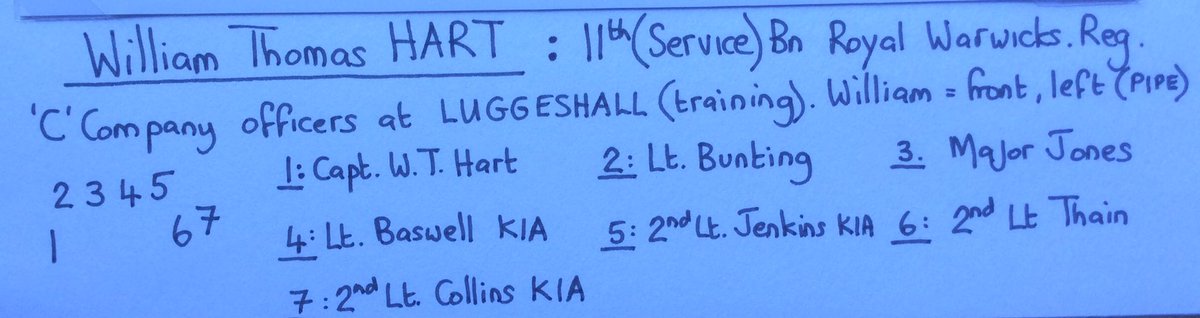 William Thomas HART : 11th (Service) Bn Royal Warwicks. Reg.
'C' Company officers at LUGGESHALL (training). William = front, left (PIPE)
1: Capt. W.T. Hart 2: Lt. Bunting 3. Major Jones
2 3 4 5
6 7 4: Lt. Baswell KIA 5: 2nd Lt. Jenkins KIA 6: 2nd Lt Thain
1
7: 2nd Lt. Collins KIA